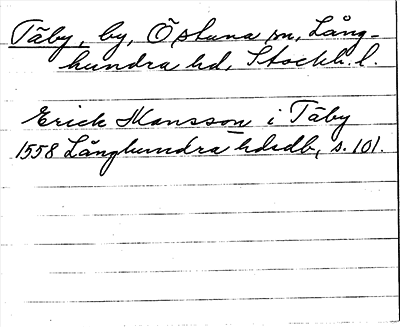 Täby, by, Östuna sn, Lång-
hundra hd, Stockh. l.
Erick Mansson i Täby
1558 Långhundra hdsdb, s. 101.